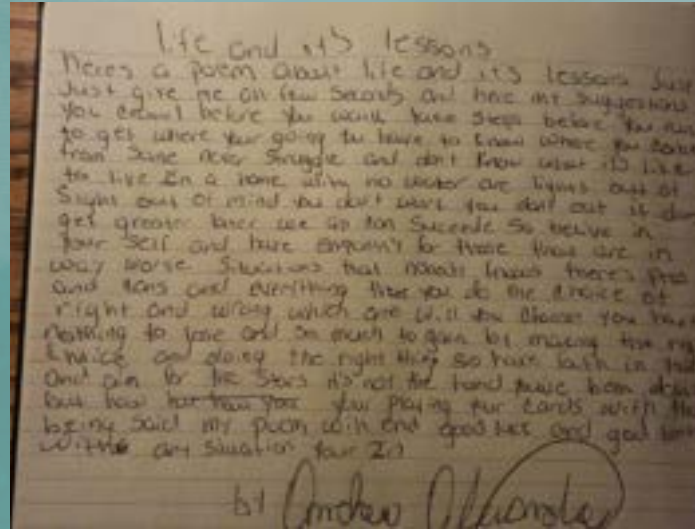 life and it's lessons
heres a poem about life and it's lessons Just
Just give me on few seconds and here my suggestions
you crawl before you walk take steps before you run
to get where your going you have to know where you come
from some never struggle and don't know what it's like
to live in a home with no water are lights out of
sight out of mind you don't work you don't eat it
get greater later we so can succede so belive in
your self and have for those that are in
way worse situations that nobody knows there's pros
and cons and everything that you do the choice of
right and wrong which one will you choose you have
nothing to lose and so much to gain by making the rig
choice and doing the right thing so have faith in
and aim for the stars it's not the hand been
but how your playing your cards with th
being said my poem with end good luck and god
with any situation your in
by Andrew